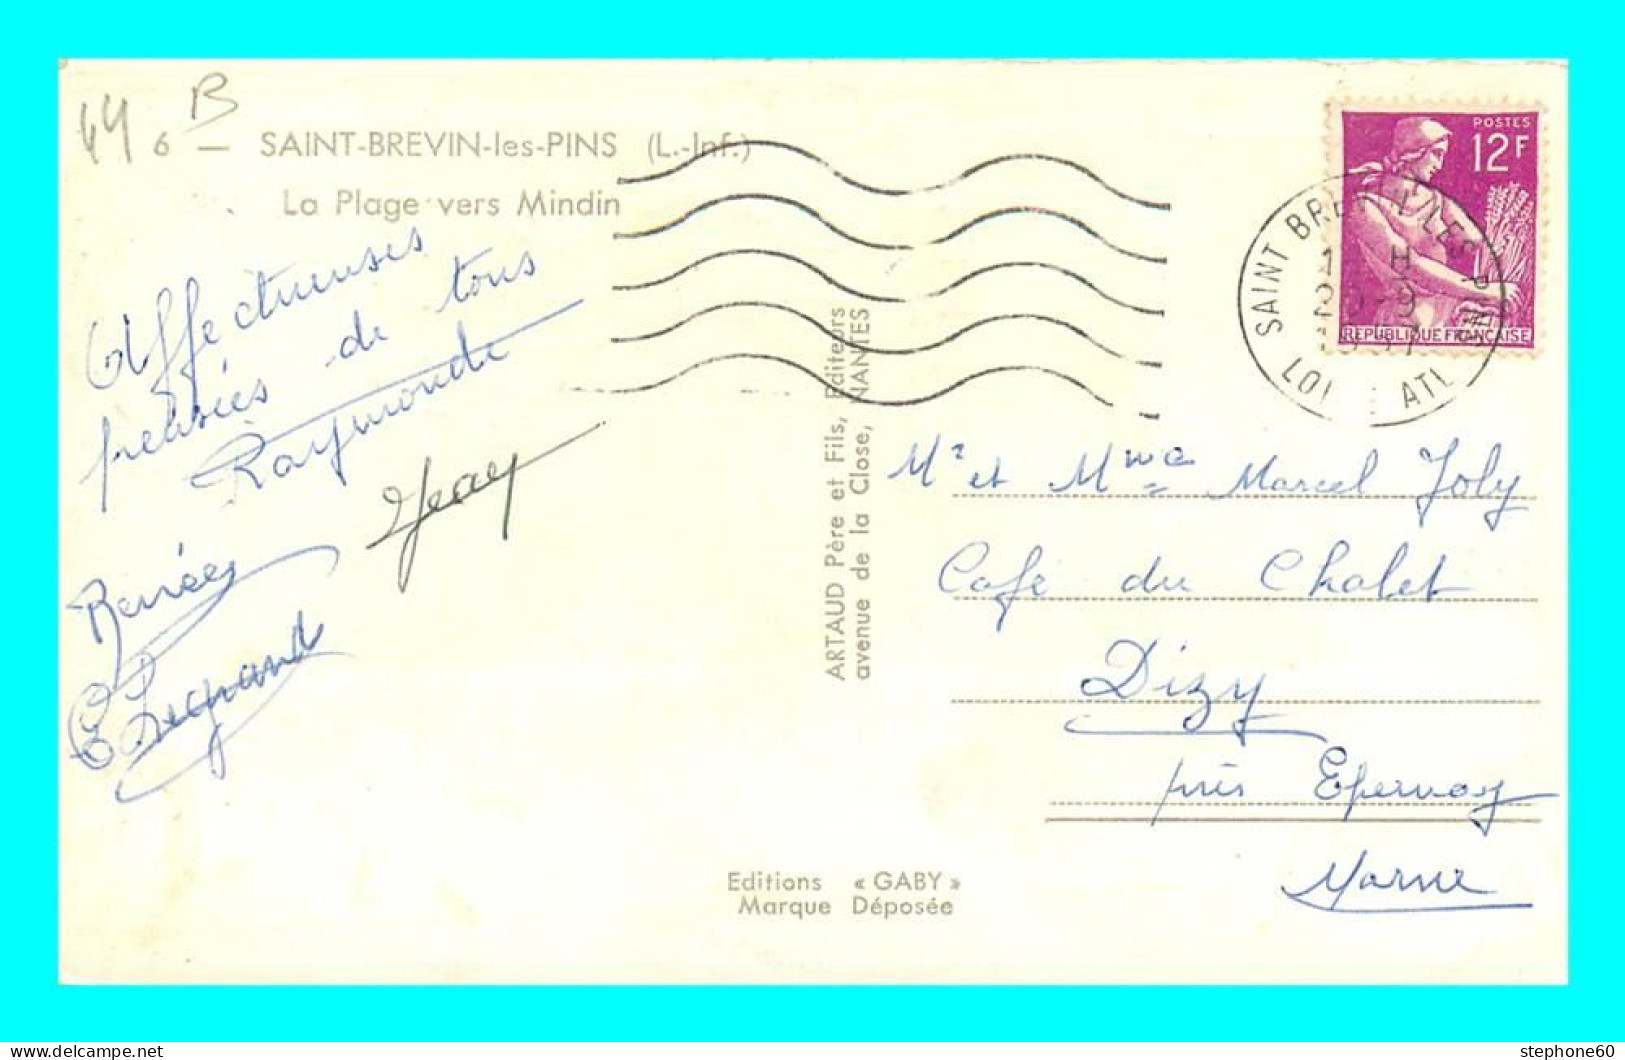 44 B
6 — SAINT-BREVIN-les-PINS (L.-Inf.)
La Plage vers Mindin
Affectueuses
pensées de tous
Raymonde
Jean
Renée
Legrand
ARTAUD Père et Fils, Editeurs
avenue de la Close, NANTES
POSTES
12F
REPUBLIQUE FRANÇAISE
SAINT BREVIN LES PINS
LOI ATL
Mr et Mme Marcel Joly
Café du Chalet
Dizy
près Epernay
Marne
Editions « GABY »
Marque Déposée
stephone60
www.delcampe.net